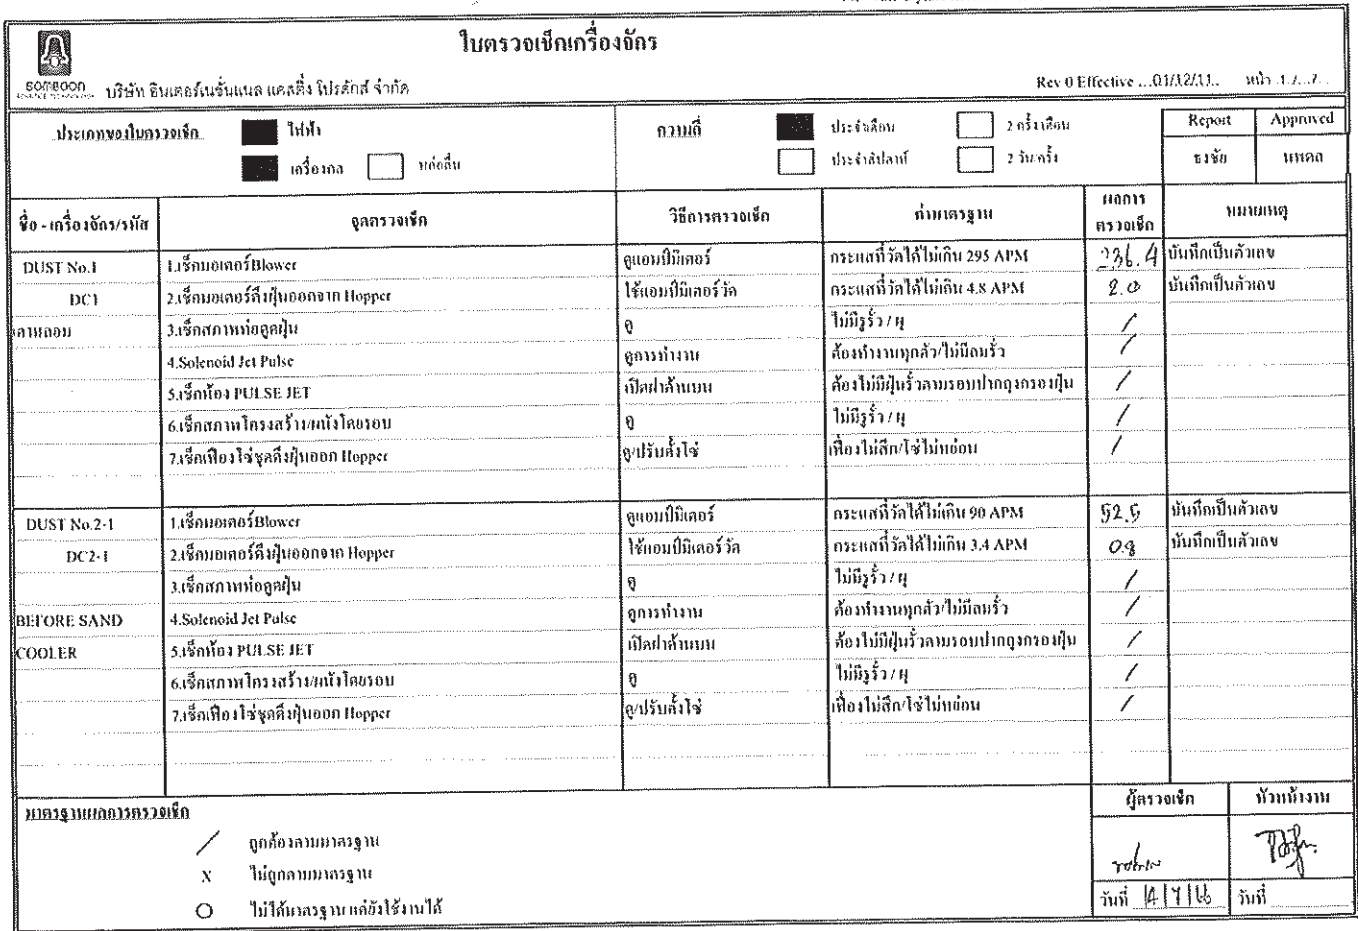 ใบตรวจเช็กเครื่องจักร
somboon
ADVANCE TECHNOLOGY
บริษัท อินเตอร์เนชั่นแนล แคสติ้ง โปรดักส์ จำกัด
Rev 0 Effective ...01/12/11.. หน้า .1./...7..
ประเภทของใบตรวจเช็ก ไฟฟ้า ความถี่ ประจำเดือน 2 ครั้ง/เดือน Report Approved
เครื่องกล หล่อลื่น ประจำสัปดาห์ 2 วัน/ครั้ง ธงชัย นพดล
ชื่อ - เครื่องจักร/รหัส จุดตรวจเช็ก วิธีการตรวจเช็ก ค่ามาตรฐาน ผลการตรวจเช็ก หมายเหตุ
DUST No.1 1.เช็กมอเตอร์Blower ดูแอมป์มิเตอร์ กระแสที่วัดได้ไม่เกิน 295 APM 236.4 บันทึกเป็นตัวเลข
DC1 2.เช็กมอเตอร์ดึงฝุ่นออกจาก Hopper ใช้แอมป์มิเตอร์วัด กระแสที่วัดได้ไม่เกิน 4.8 APM 2.0 บันทึกเป็นตัวเลข
เตาหลอม 3.เช็กสภาพท่อดูดฝุ่น ดู ไม่มีรูรั่ว / ผุ /
4.Solenoid Jet Pulse ดูการทำงาน ต้องทำงานทุกตัว/ไม่มีลมรั่ว /
5.เช็กห้อง PULSE JET เปิดฝาด้านบน ต้องไม่มีฝุ่นรั่วตามรอบปากถุงกรองฝุ่น /
6.เช็กสภาพโครงสร้าง/ผนังโดยรอบ ดู ไม่มีรูรั่ว / ผุ /
7.เช็กเฟืองโซ่ชุดดึงฝุ่นออก Hopper ดู/ปรับตั้งโซ่ เฟืองไม่สึก/โซ่ไม่หย่อน /
DUST No.2-1 1.เช็กมอเตอร์Blower ดูแอมป์มิเตอร์ กระแสที่วัดได้ไม่เกิน 90 APM 52.5 บันทึกเป็นตัวเลข
DC2-1 2.เช็กมอเตอร์ดึงฝุ่นออกจาก Hopper ใช้แอมป์มิเตอร์วัด กระแสที่วัดได้ไม่เกิน 3.4 APM 0.8 บันทึกเป็นตัวเลข
3.เช็กสภาพท่อดูดฝุ่น ดู ไม่มีรูรั่ว / ผุ /
BEFORE SAND 4.Solenoid Jet Pulse ดูการทำงาน ต้องทำงานทุกตัว/ไม่มีลมรั่ว /
COOLER 5.เช็กห้อง PULSE JET เปิดฝาด้านบน ต้องไม่มีฝุ่นรั่วตามรอบปากถุงกรองฝุ่น /
6.เช็กสภาพโครงสร้าง/ผนังโดยรอบ ดู ไม่มีรูรั่ว / ผุ /
7.เช็กเฟืองโซ่ชุดดึงฝุ่นออก Hopper ดู/ปรับตั้งโซ่ เฟืองไม่สึก/โซ่ไม่หย่อน /
มาตรฐานผลการตรวจเช็ก ผู้ตรวจเช็ก หัวหน้างาน
/ ถูกต้องตามมาตรฐาน
X ไม่ถูกตามมาตรฐาน
O ไม่ได้มาตรฐานแต่ยังใช้งานได้
วันที่ 14/7/16 วันที่